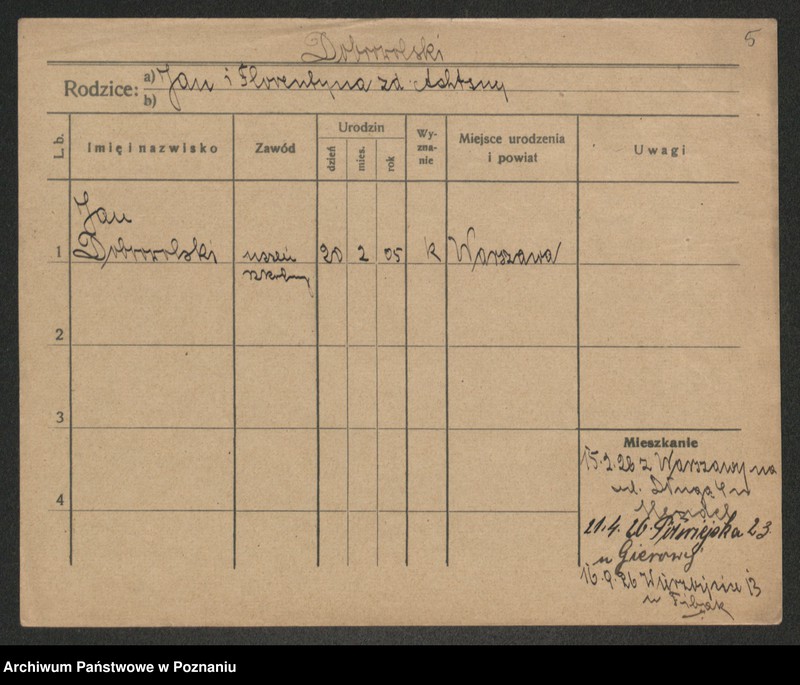 5
Dobrowolski
Rodzice: a) Jan i Florentyna zd.
b)
L. b. Imię i nazwisko Zawód Urodzin dzień mies. rok Wy-zna-nie Miejsce urodzenia i powiat Uwagi
Jan
1 Dobrowolski uczeń 20 2 05 k Warszawa
szkolny
2
3
Mieszkanie
15.2.26 z Warszawy na
4 ul. Długa u
21.4.26 Półwiejska 23
u
16.9.26 Wierzbięcice 13
u
Archiwum Państwowe w Poznaniu